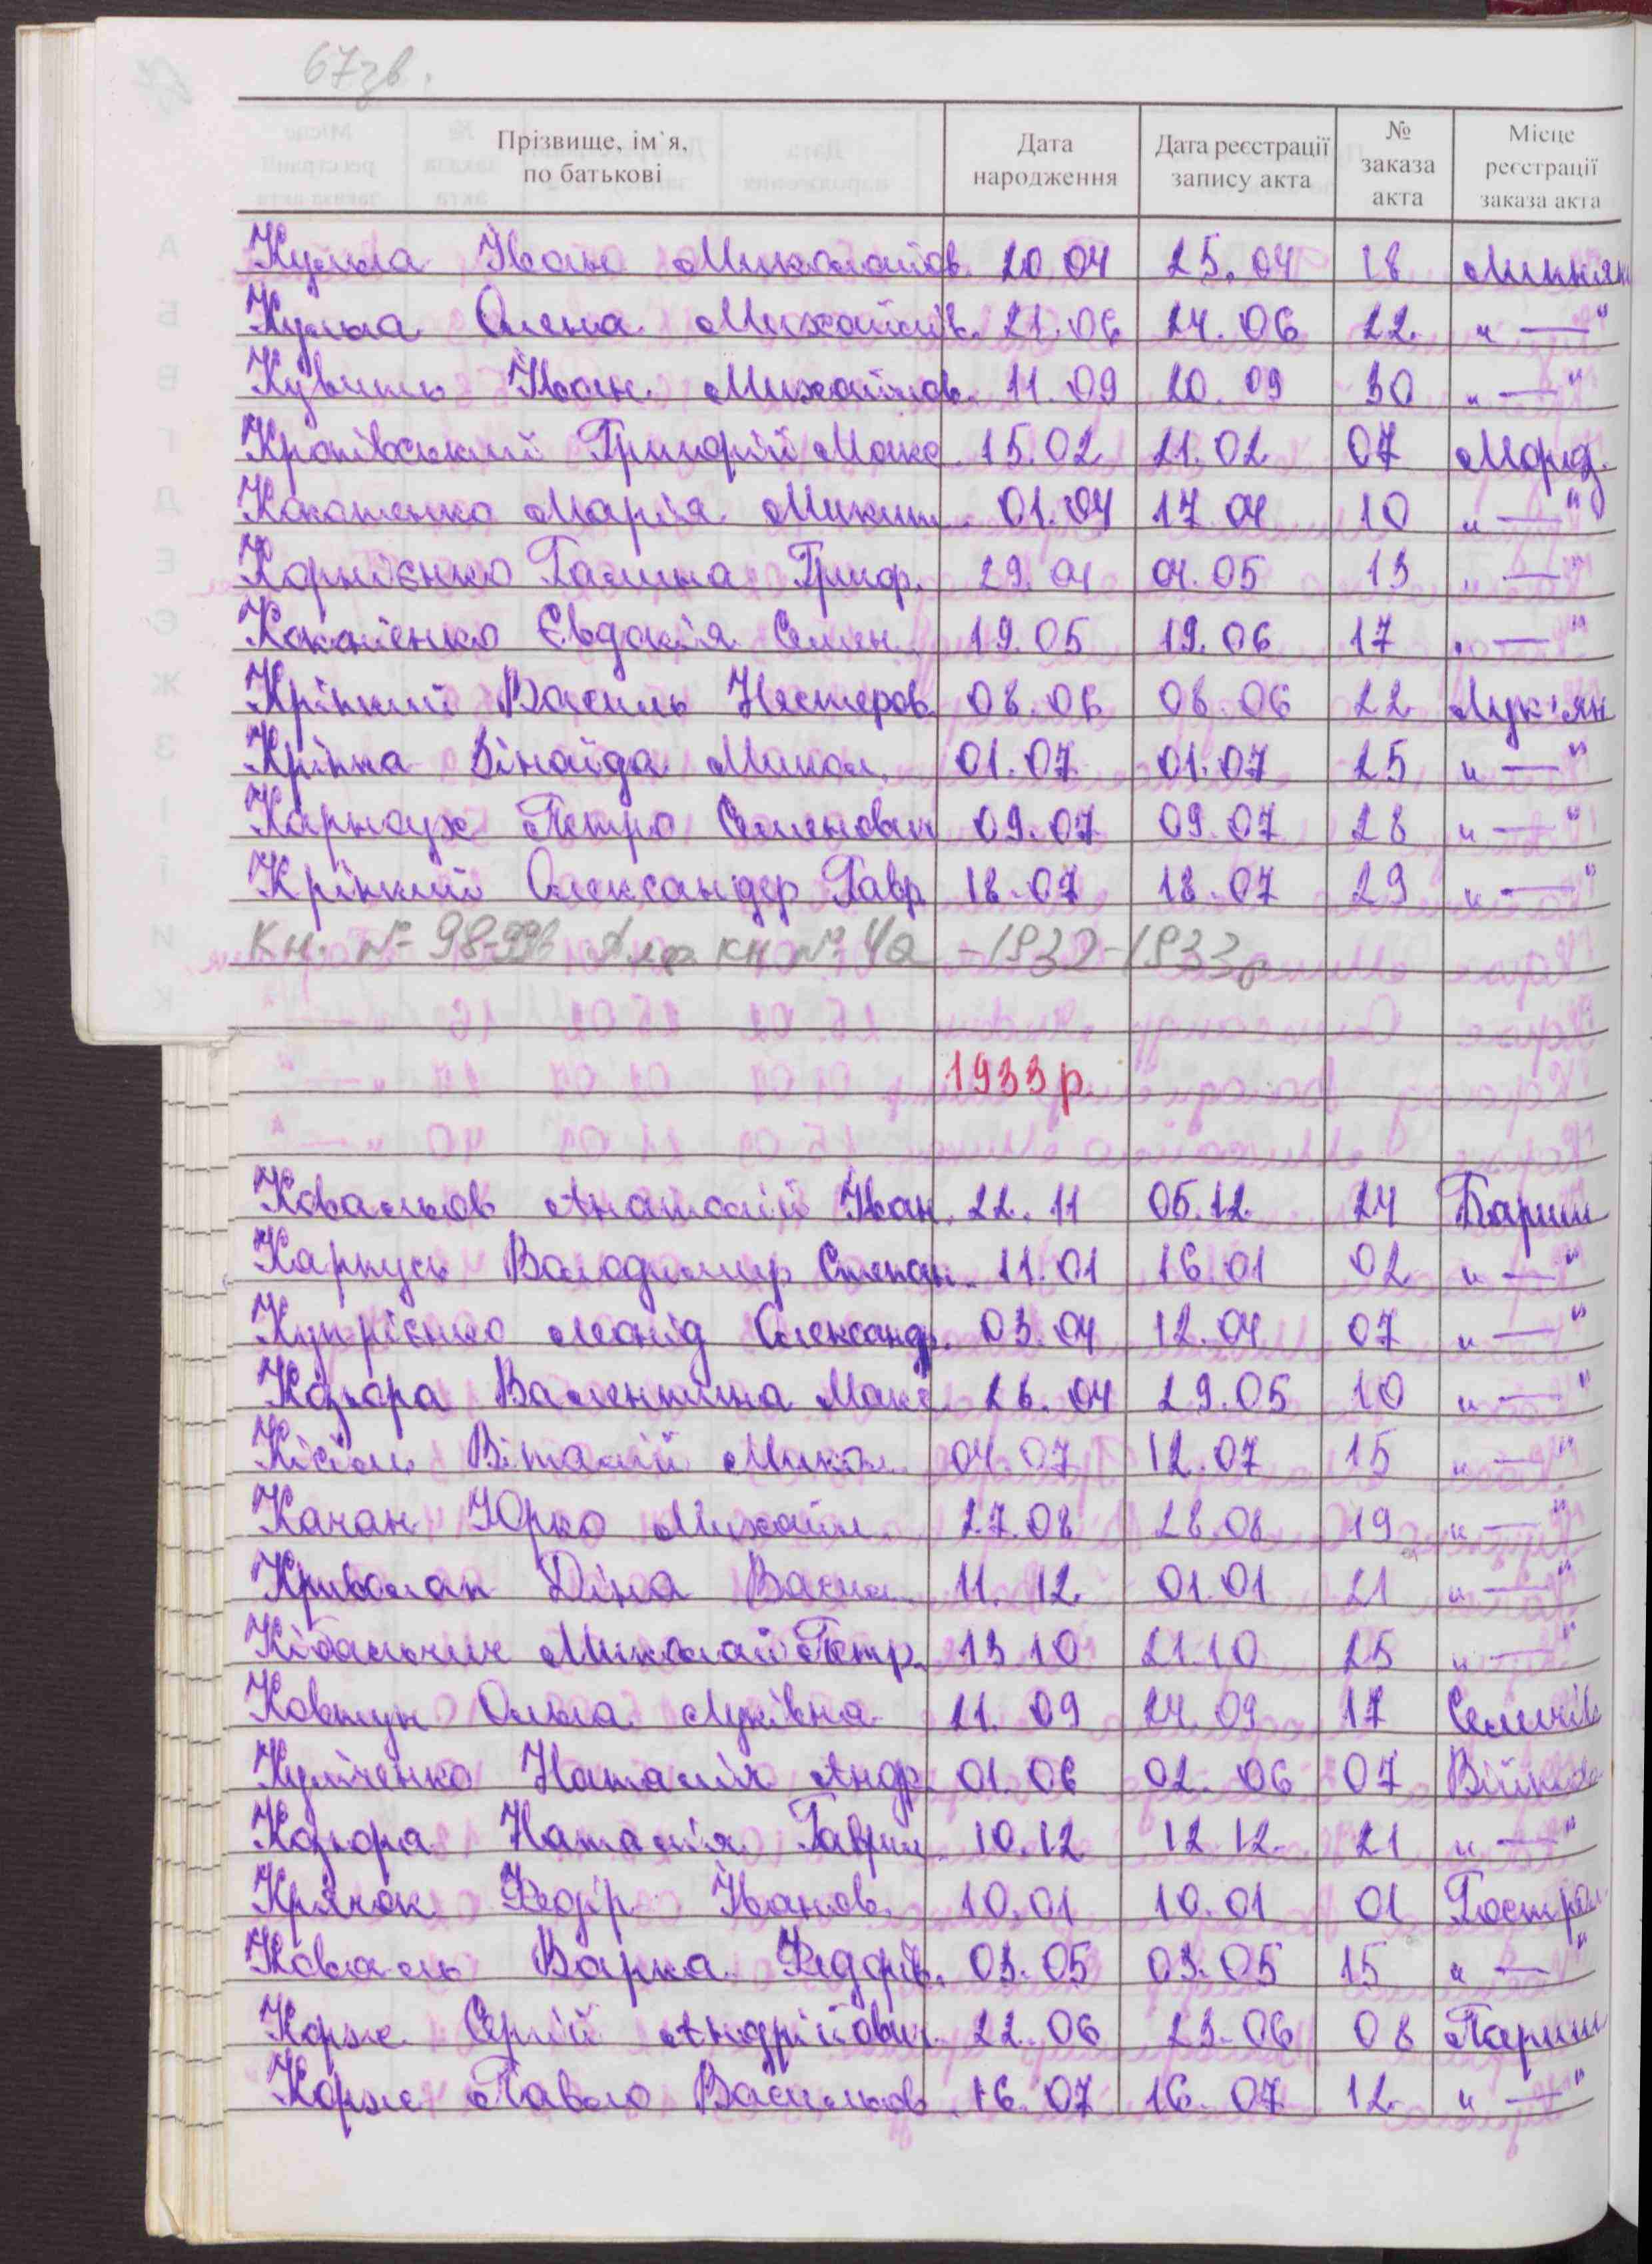 67зв.
Прізвище, ім`я, по батькові Дата народження Дата реєстрації запису акта № заказа акта Місце реєстрації заказа акта
Кульга Іван Миколайов. 20.04 25.04 18
Кульга Олена Михайлів. 21.06 24.06 22. " — "
Іван. Михайлов. 11.09 20.09 30 " — "
Кропівський Григорій Макс 15.02 21.02 07
Марія Микит 01.04 17.04 10 " — "
Корнієнко Галина Григ. 29.04 04.05 13 " — "
Євдокія Семен. 19.05 19.06 17 " — "
Кріпкий Василь Нестеров. 08.06 08.06 22 Лук'ян
Кріпка Зінаїда Микол. 01.07 01.07 25 " — "
Карнаух Петро Семенович 09.07 09.07 28 " — "
Кріпкий Олександер Гавр. 18.07 18.07 29 " — "
Кн. № 98-99в Алф кн № 42 -1932-1933р
1933 р.
Ковальов Анатолій Іван. 22.11 05.12. 24 Бариш
Карпусь Володимир Степан. 11.01 16.01 02 " — "
Купрієнко Леонід Олександр. 03.04 12.04 07 " — "
Козьора Валентина Макс. 26.04 29.05 10 " — "
Кісіль Віталій Микол. 04.07 12.07 15 " — "
Качан Юрко Михайл. 27.08 28.08 19 " — "
Діна Васил. 11.12. 01.01 21 " — "
Кібальчич Миколай Петр. 13.10 21.10 25 " — "
Ковтун Ольга Луківна 21.09 24.09 17
Наталія Андр. 01.06 02.06 07
Козьора Наталія Гаврил. 10.12 12.12. 21 " — "
Крячок Федір Іванов. 10.01 10.01 01
Коваль Варка Федорів. 03.05 03.05 15 " — "
Корж Сергій Андрійович. 22.06 23.06 08 Париш
Корж Павло Васильов. 16.07 16.07 12. " — "